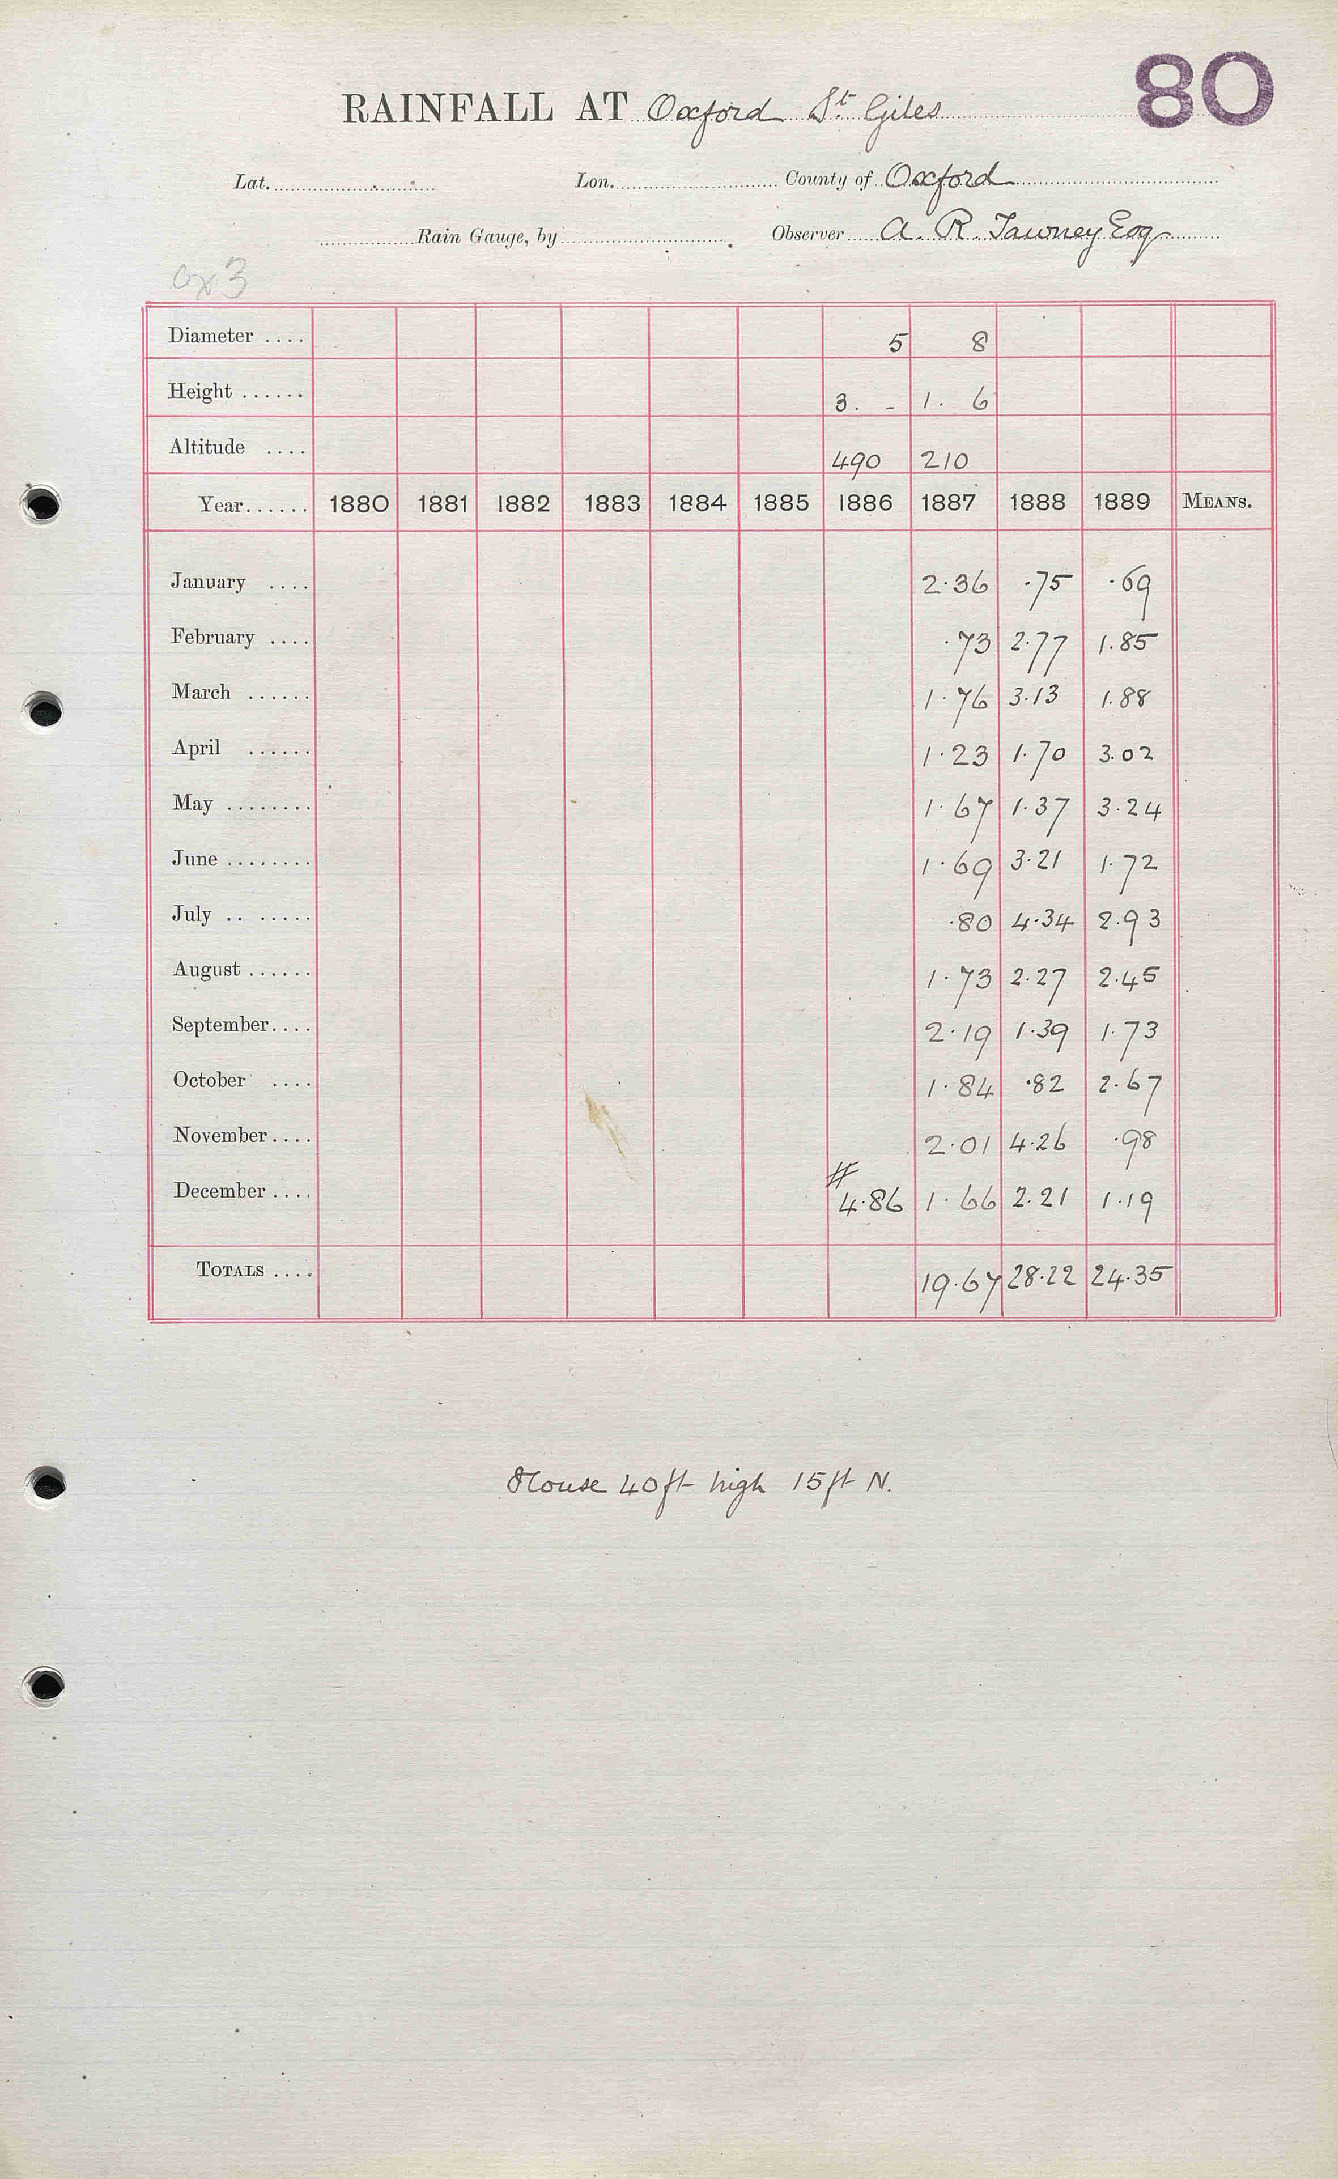 80
RAINFALL AT Oxford St. Giles
Lat. Lon. County of Oxford
Rain Gauge, by Observer A. R. Tawney Esq
Ox 3
Diameter .... 5 8
Height ...... 3. - 1. 6
Altitude .... 490 210
Year...... 1880 1881 1882 1883 1884 1885 1886 1887 1888 1889 MEANS.
January .... 2.36 .75 .69
February .... .73 2.77 1.85
March ...... 1.76 3.13 1.88
April ...... 1.23 1.70 3.02
May ........ 1.67 1.37 3.24
June ........ 1.69 3.21 1.72
July .. ..... .80 4.34 2.93
August ...... 1.73 2.27 2.45
September.... 2.19 1.39 1.73
October .... 1.84 .82 2.67
November.... 2.01 4.26 .98
December .... # 4.86 1.66 2.21 1.19
TOTALS .... 19.67 28.22 24.35
House 40ft high 15ft N.